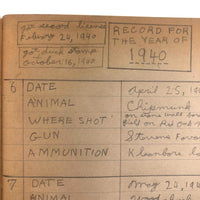 got second license
February 20, 1940
got duck stamp
October 16, 1940
RECORD FOR
THE YEAR OF
1940
6 DATE April 25, 19
ANIMAL Chipmunk
on stone wall bou
WHERE SHOT
GUN Stevens Favor
AMMUNITION Kleanbore lo
7 DATE May 24, 194
ANIMAL